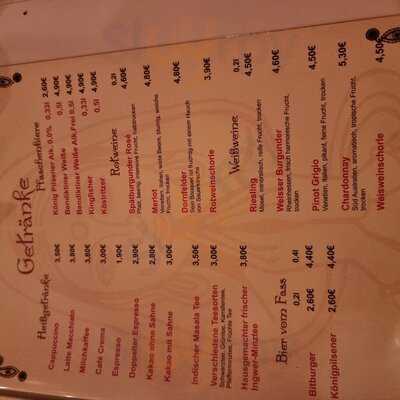 Getränke
Heißgetränke
Cappuccino 3,50€
Latte Macchiato 3,80€
Milchkaffee 3,80€
Cafe Crema 3,00€
Espresso 1,90€
Doppelter Espresso 2,90€
Kakao ohne Sahne 2,80€
Kakao mit Sahne 3,00€
Indischer Masala Tee 3,50€
Verschiedene Teesorten 3,00€
Schwarztee, Grüntee, Kamillentee,
Pfefferminztee, Früchte Tee
Hausgemachter frischer 3,80€
Ingwer-Minztee
Bier vom Fass 0,2l 0,4l
Bitburger 2,60€ 4,40€
Königpilsener 2,60€ 4,40€
Flaschenbiere
König Pilsener Alk. 0,0% 0,33l 2,60€
Benediktiner Weiße 0,5l 4,90€
Benediktiner Weiße Alk.Frei 0,5l 4,90€
Kingfisher 0,33l 4,90€
Köstritzer 0,5l 4,90€
Rotweine 0,2l
Spätburgunder Rosé 4,60€
Merlot 4,80€
Frucht, trocken
Dornfelder 4,80€
Rotweinschorle 3,90€
Weißweine 0,2l
Riesling 4,50€
Weisser Burgunder 4,60€
trocken
Pinot Grigio 4,80€
Venetien, Italien, pikant, feine Frucht, trocken
Chardonnay 5,30€
Süd Australien, aromatisch, tropische Frucht,
trocken
Weisweinschorle 4,50€